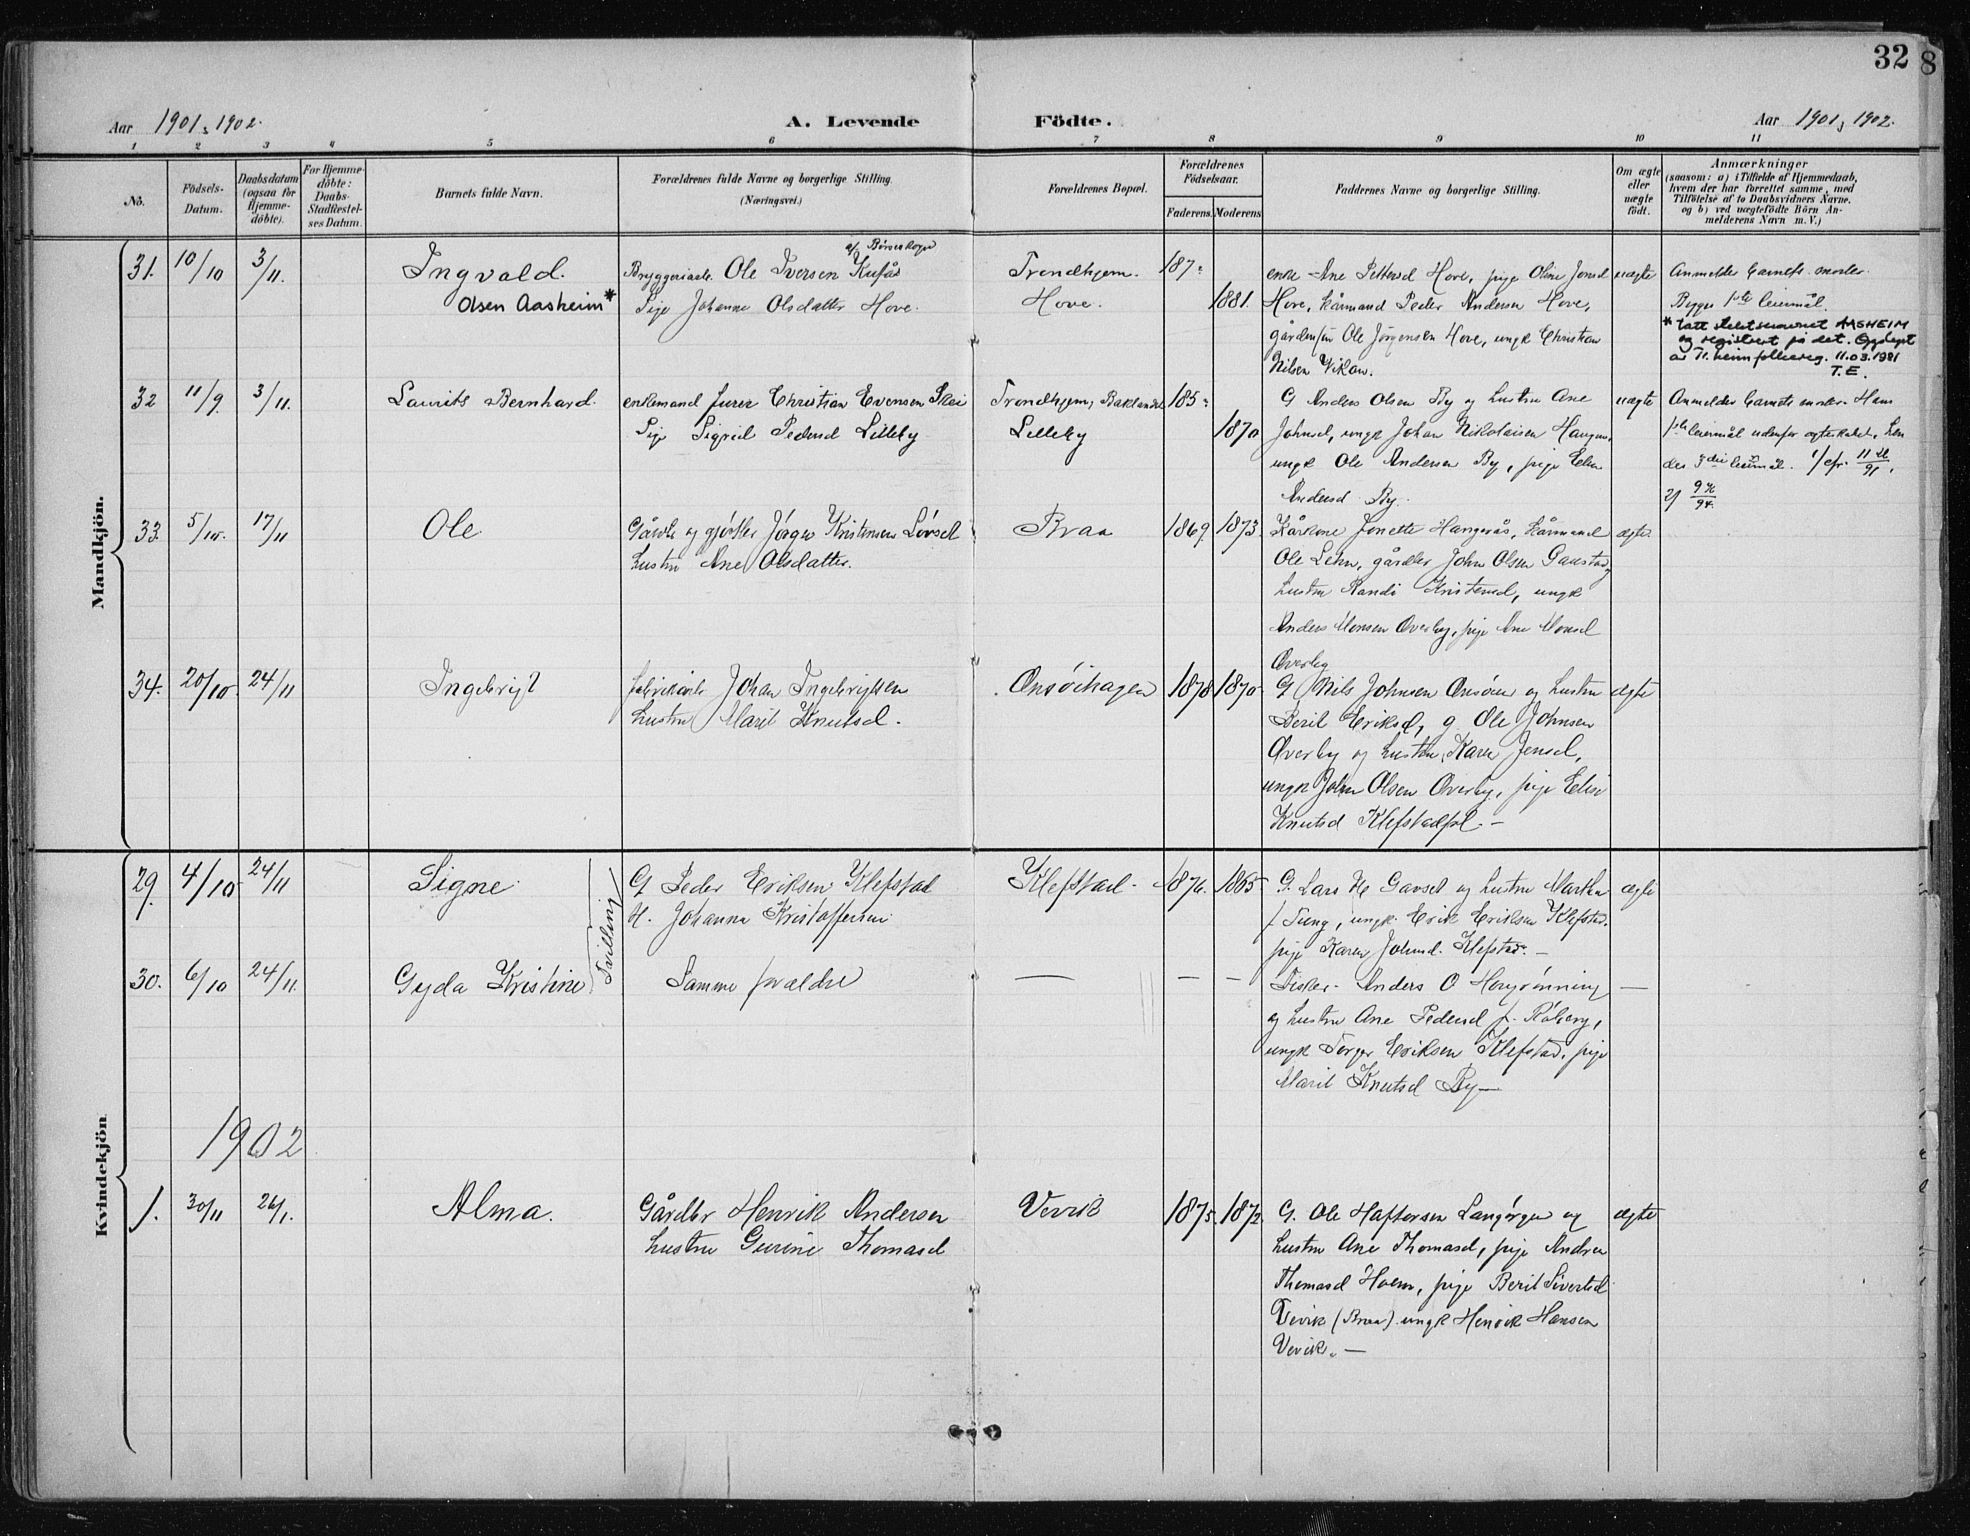 32
8
Aar 1901, 1902.
A. Levende Födte.
Aar 1901, 1902.
1 2 3 4 5 6 7 8 9 10 11
No.
Födsels-Datum.
Daabsdatum (ogsaa for Hjemme-döbte).
For Hjemme-döbte: Daabs-Stadfæstel-ses Datum.
Barnets fulde Navn.
Forældrenes fulde Navne og borgerlige Stilling. (Næringsvei.)
Forældrenes Bopæl.
Forældrenes Födselsaar.
Faderens. Moderens.
Faddernes Navne og borgerlige Stilling.
Om ægte eller uægte födt.
Anmærkninger
(saasom: a) i Tilfælde af Hjemmedaab,
hvem der har forrettet samme, med
Tilföielse af to Daabsvidners Navne.
og b) ved uægtefödte Börn An-
melderens Navn m. V.)
Mandkjön.
31. 10/10 3/11. Ingvald.
Olsen Aasheim*
Ole Iversen Kufås
Pige Johanne Olsdatter Hove.
Trondhjem.
Hove.
187
1881.
enke Ane Pettersd Hove, pige Oline Jensd
Hove, kårmand Peder Andersen Hove,
Ole Jørgensen Hove, ungk Christian
Nilsen Vikan.
uægte
Anmelder barnets moder.
Begges 1ste leiermål.
* Tatt slektsnavnet AASHEIM
og registrert på det. Opplyst
av Tr.heim folkereg. 11.03.1981
T.E.
32 11/9 3/11. Laurits Bernhard.
enkemand furer Christian Evensen Skei
Pige Sigrid Pedersd Lilleby
Trondhjem, Baklandet
Lilleby
185
1870
G Anders Olsen By og hustru Ane
Johnsd, ungk Johan Nikolaisen Haugen,
ungk Ole Andersen By, pige Elen
Andersd By.
uægte
Anmelder barnets moder. Hans
1ste leiermål udenfor egteskabet, hen
des 3die leiermål.
33. 5/10. 17/11 Ole
Gårdbr og gjørtler Jørgen Kristensen Løvset
hustru Ane Olsdatter.
Braa
1869 1873
Kårkone Jonette Hangerås, kårmand
Ole Lehn, gårdbr John Olsen Gaustad,
hustru Randi Kristensd, ungk
Anders Monsen Overby, pige Ane Monsd
Overby
ægte
34. 20/10 24/11 Ingebrigt
fabrikarb Johan Ingebrigtsen
hustru Marit Knutsd.
Onsøihagen
1878 1870
G Nils Johnsen Onsøien og hustru
Berit Eriksd, g Ole Johnsen
Overby og hustru Karen Jensd,
ungk John Olsen Overby, pige Elise
Knutsd Klefstadpl. —
ægte
Kvindekjön
29. 4/10 24/11 Signe
Tvilling
G Peder Eriksen Klefstad
H. Johanna Kristoffersen
Klefstad
1876. 1865
G. Lars H Gavset og hustru Martha
f Tung, ungk. Erik Eriksen Klefstad.
pige Karen Johnsd. Klefstad. —
ægte
30. 6/10 24/11. Gyda Kristine
Samme forældre
— — —
Fisker Anders O Høyrønning
og hustru Ane Pedersd f. Råberg,
ungk Torger Eriksen Klefstad. pige
Marit Knutsd By —
—
1902
1. 30/11 26/1. Alma.
Gårdbr Henrik Andersen
hustru Gurine Thomasd
Vevik
1875. 1872.
G. Ole Haftorsen Langørgen og
hustru Ane Thomasd, pige Andrea
Thomasd Holem, pige Berit Sivertsd
Vevik (Braa) ungk Henrik Hansen
Vevik. —
ægte